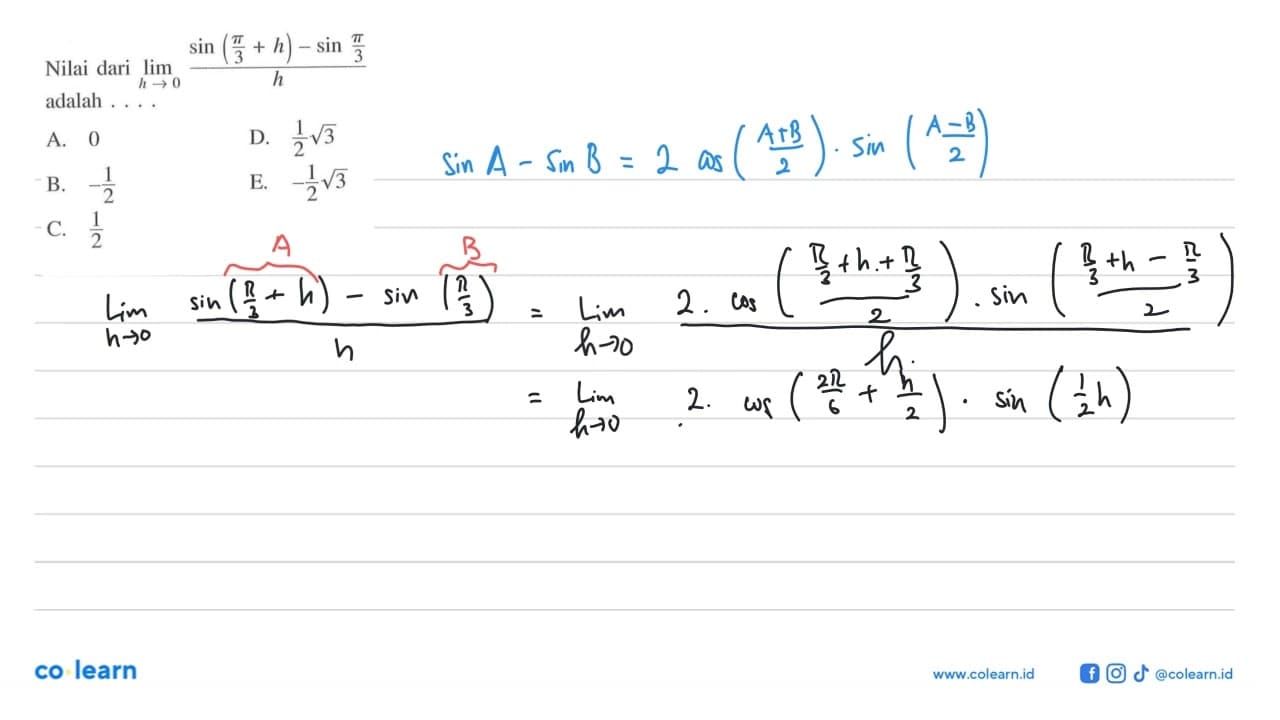 Nilai dari lim h → 0 sin (π/3 + h) – sin π/3 / h
adalah . . . .
A. 0
B. –1/2
C. 1/2
D. 1/2 √3
E. –1/2 √3
sin A - sin B = 2 cos (A+B/2) . sin (A-B/2)
A B
Lim h→0 sin (π/3 + h) - sin (π/3) / h = Lim h→0 2. cos (π/3 + h + π/3 / 2) . sin (π/3 + h - π/3 / 2) / h
= Lim h→0 2. cos (2π/6 + h/2) . sin (1/2 h)
co learn
www.colearn.id @colearn.id